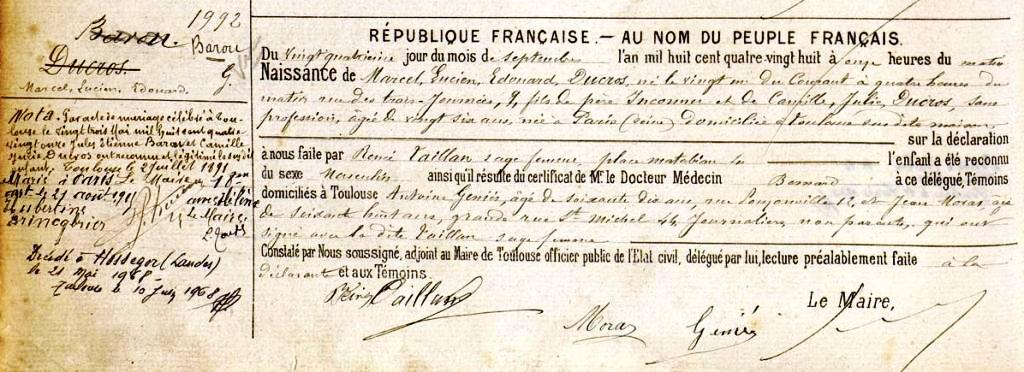 1992
Baron.
Barou
Ducros.
G.
Marcel, Lucien, Edouard.
Nota. Par acte de mariage célébré à Tou-
louse le vingt trois Mai mil huit cent quatre-
vingt onze Jules Etienne Barou et Camille
Julie Ducros ont reconnu et légitimé le susdit
enfant. Toulouse le 2 juillet 1891
Marié à Paris Le Maire
le 27 nov. 1917
avec Hélène
Libertine
Le Maire
Bringuier
Décédé à Hossegor (Landes)
le 21 mai 1968
Toulouse le 10 Juin 1968
RÉPUBLIQUE FRANÇAISE. — AU NOM DU PEUPLE FRANÇAIS.
Du vingt quatrième jour du mois de septembre l'an mil huit cent quatre-vingt huit à onze heures du matin
Naissance de Marcel, Lucien, Edouard, Ducros, né le vingt un du Courant à quatre heures du
matin rue des trois-Journées, 9, fils de père Inconnu et de Camille, Julie, Ducros, sans
profession, agée de vingt six ans, née à Paris (Seine) domiciliée à Toulouse susdite maison
sur la déclaration
à nous faite par Remé Vaillan sage femme, place matabiau 10 l'enfant a été reconnu
du sexe Masculin ainsi qu'il résulte du certificat de Mr. le Docteur Médecin Bernard à ce délégué, Témoins
domiciliés à Toulouse Antoine Geniés, âgé de soixante dix ans, rue 12, et Jean Moras, âgé
de soixante huit ans, grande rue St. Michel 44, Journaliers, non parents, qui ont
signé avec la dite Vaillan sage femme
Constaté par Nous soussigné, adjoint au Maire de Toulouse officier public de l'Etat civil, délégué par lui, lecture préalablement faite à la
déclarante et aux Témoins.
Vaillan
Moras
Geniés
Le Maire,